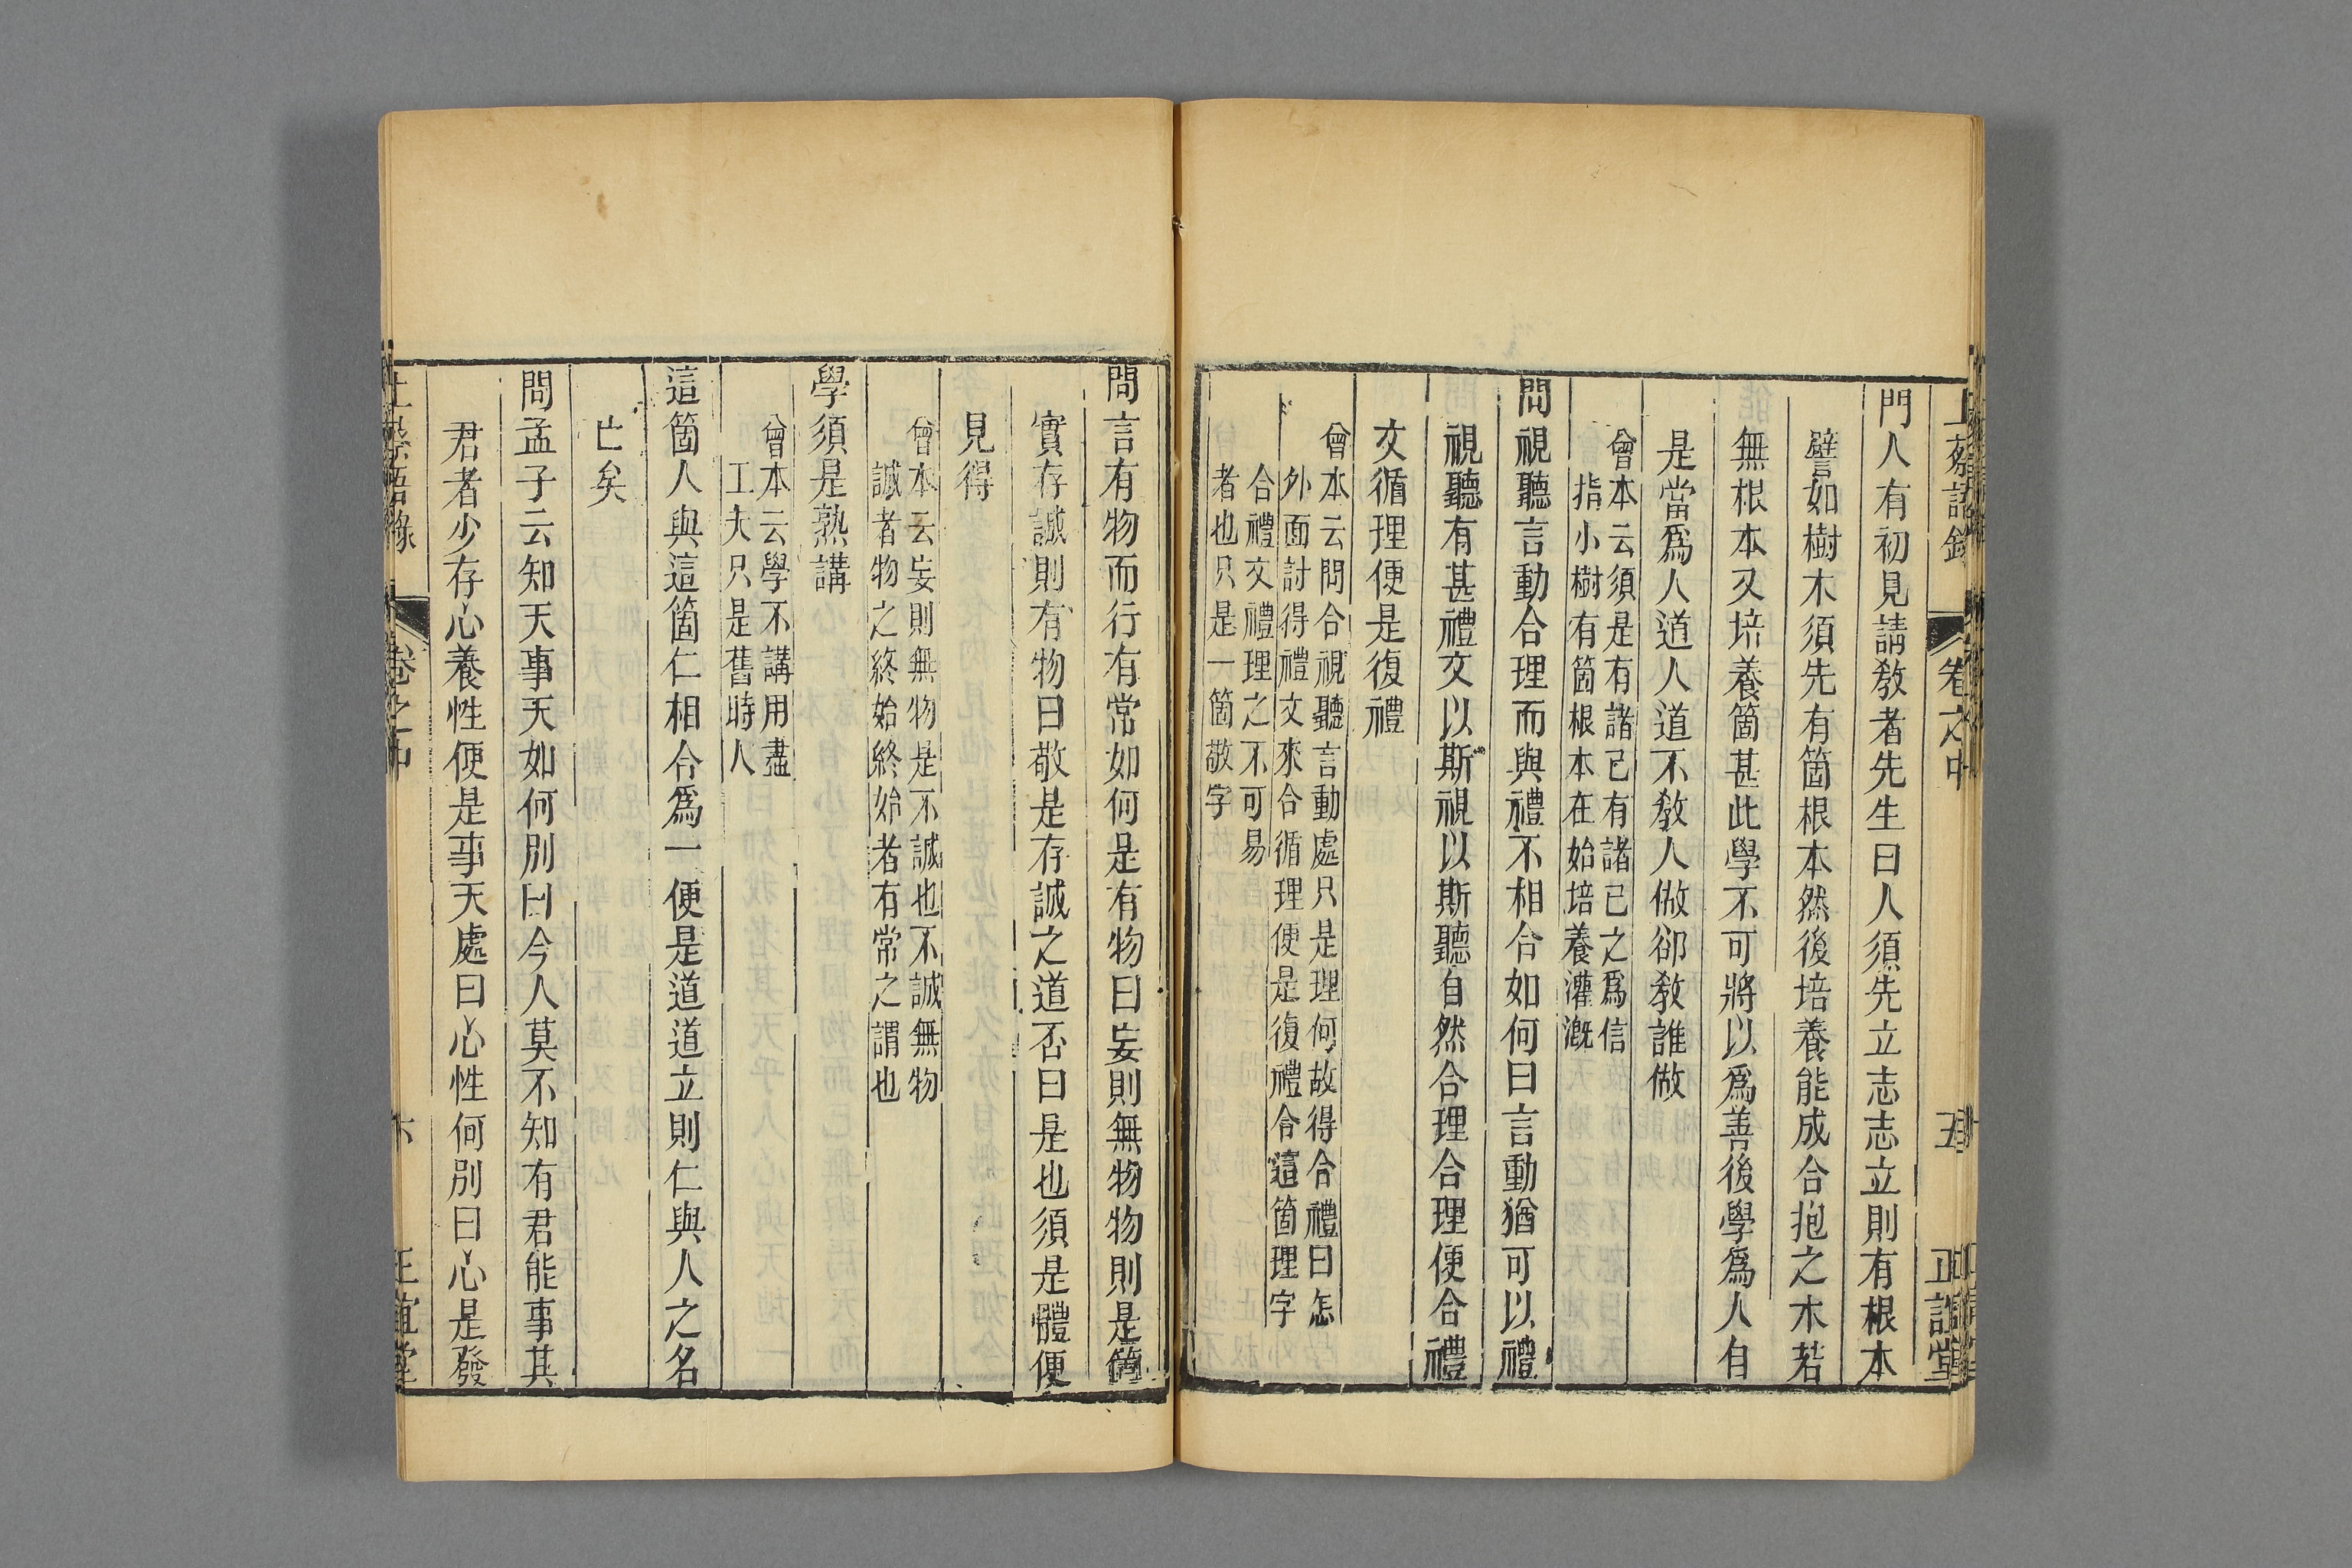 上蔡語錄 卷之中 五 正誼堂
門人有初見請教者先生曰人須先立志志立則有根本
譬如樹木須先有箇根本然後培養能成合抱之木若
無根本又培養箇甚此學不可將以爲善後學爲人自
是當爲人道人道不教人做卻教誰做
曾本云須是有諸已有諸已之爲信
指小樹有箇根本在始培養灌漑
問視聽言動合理而與禮不相合如何曰言動猶可以禮
視聽有甚禮文以斯視以斯聽自然合理合理便合禮
文循理便是復禮
曾本云問合視聽言動處只是理何故得合禮曰怎
外面討得禮文來合循理便是復禮合這箇理字
合禮文禮理之不可易
者也只是一箇敬字
問言有物而行有常如何是有物曰妄則無物物則是箇
實存誠則有物曰敬是存誠之道否曰是也須是體便
見得
曾本云妄則無物是不誠也不誠無物
誠者物之終始終始者有常之謂也
學須是熟講
曾本云學不講用盡
工夫只是舊時人
這箇人與這箇仁相合爲一便是道道立則仁與人之名
亡矣
問孟子云知天事天如何別曰今人莫不知有君能事其
君者少存心養性便是事天處曰心性何別曰心是發
上蔡語錄 卷之中 六 正誼堂